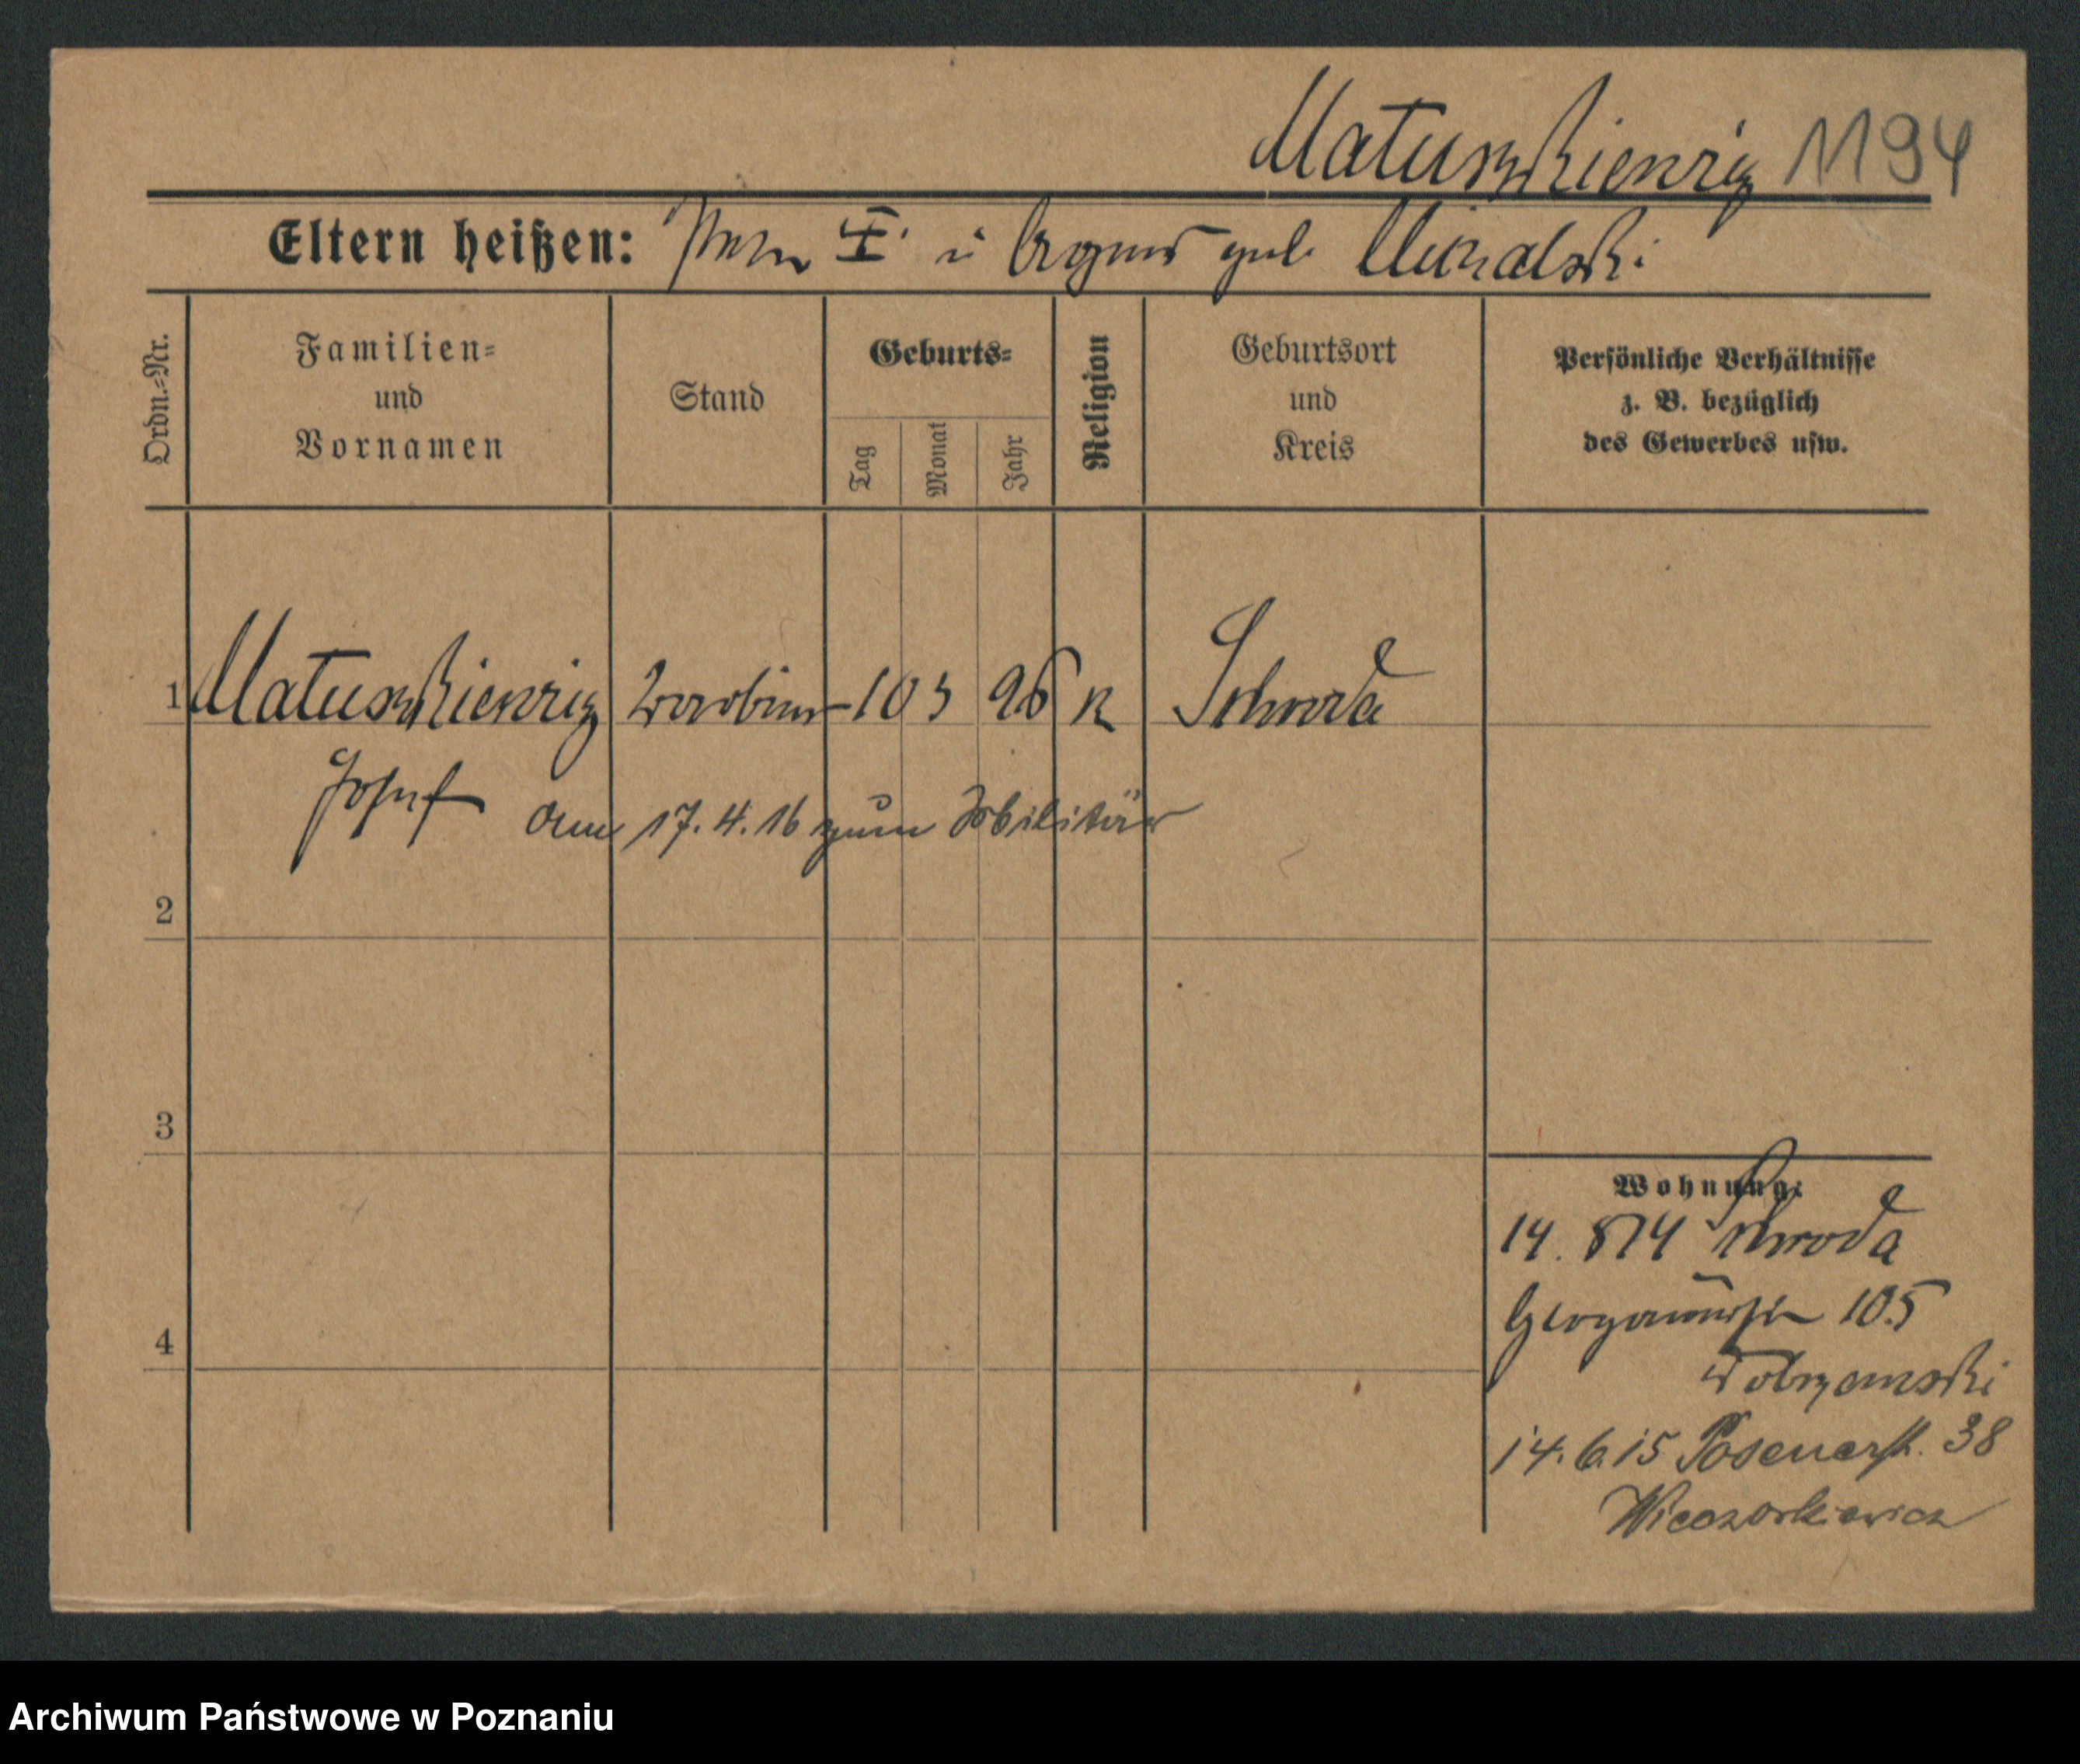 Matuszkiewicz 1194
Eltern heißen: I u Agnes geb. Michalski
Ordn.=Nr.
Familien=
und
Vornamen
Stand
Geburts=
Tag
Monat
Jahr
Religion
Geburtsort
und
Kreis
Persönliche Verhältnisse
z. B. bezüglich
des Gewerbes usw.
1 Matuszkiewicz 10 3 96 k Schroda
Josef
am 17. 4. 16 zum Militär
2
3
4
Wohnung:
14. 8 14 Schroda
105
14. 6 15 Posenerstr. 38
Wieczorkiewicz
Archiwum Państwowe w Poznaniu